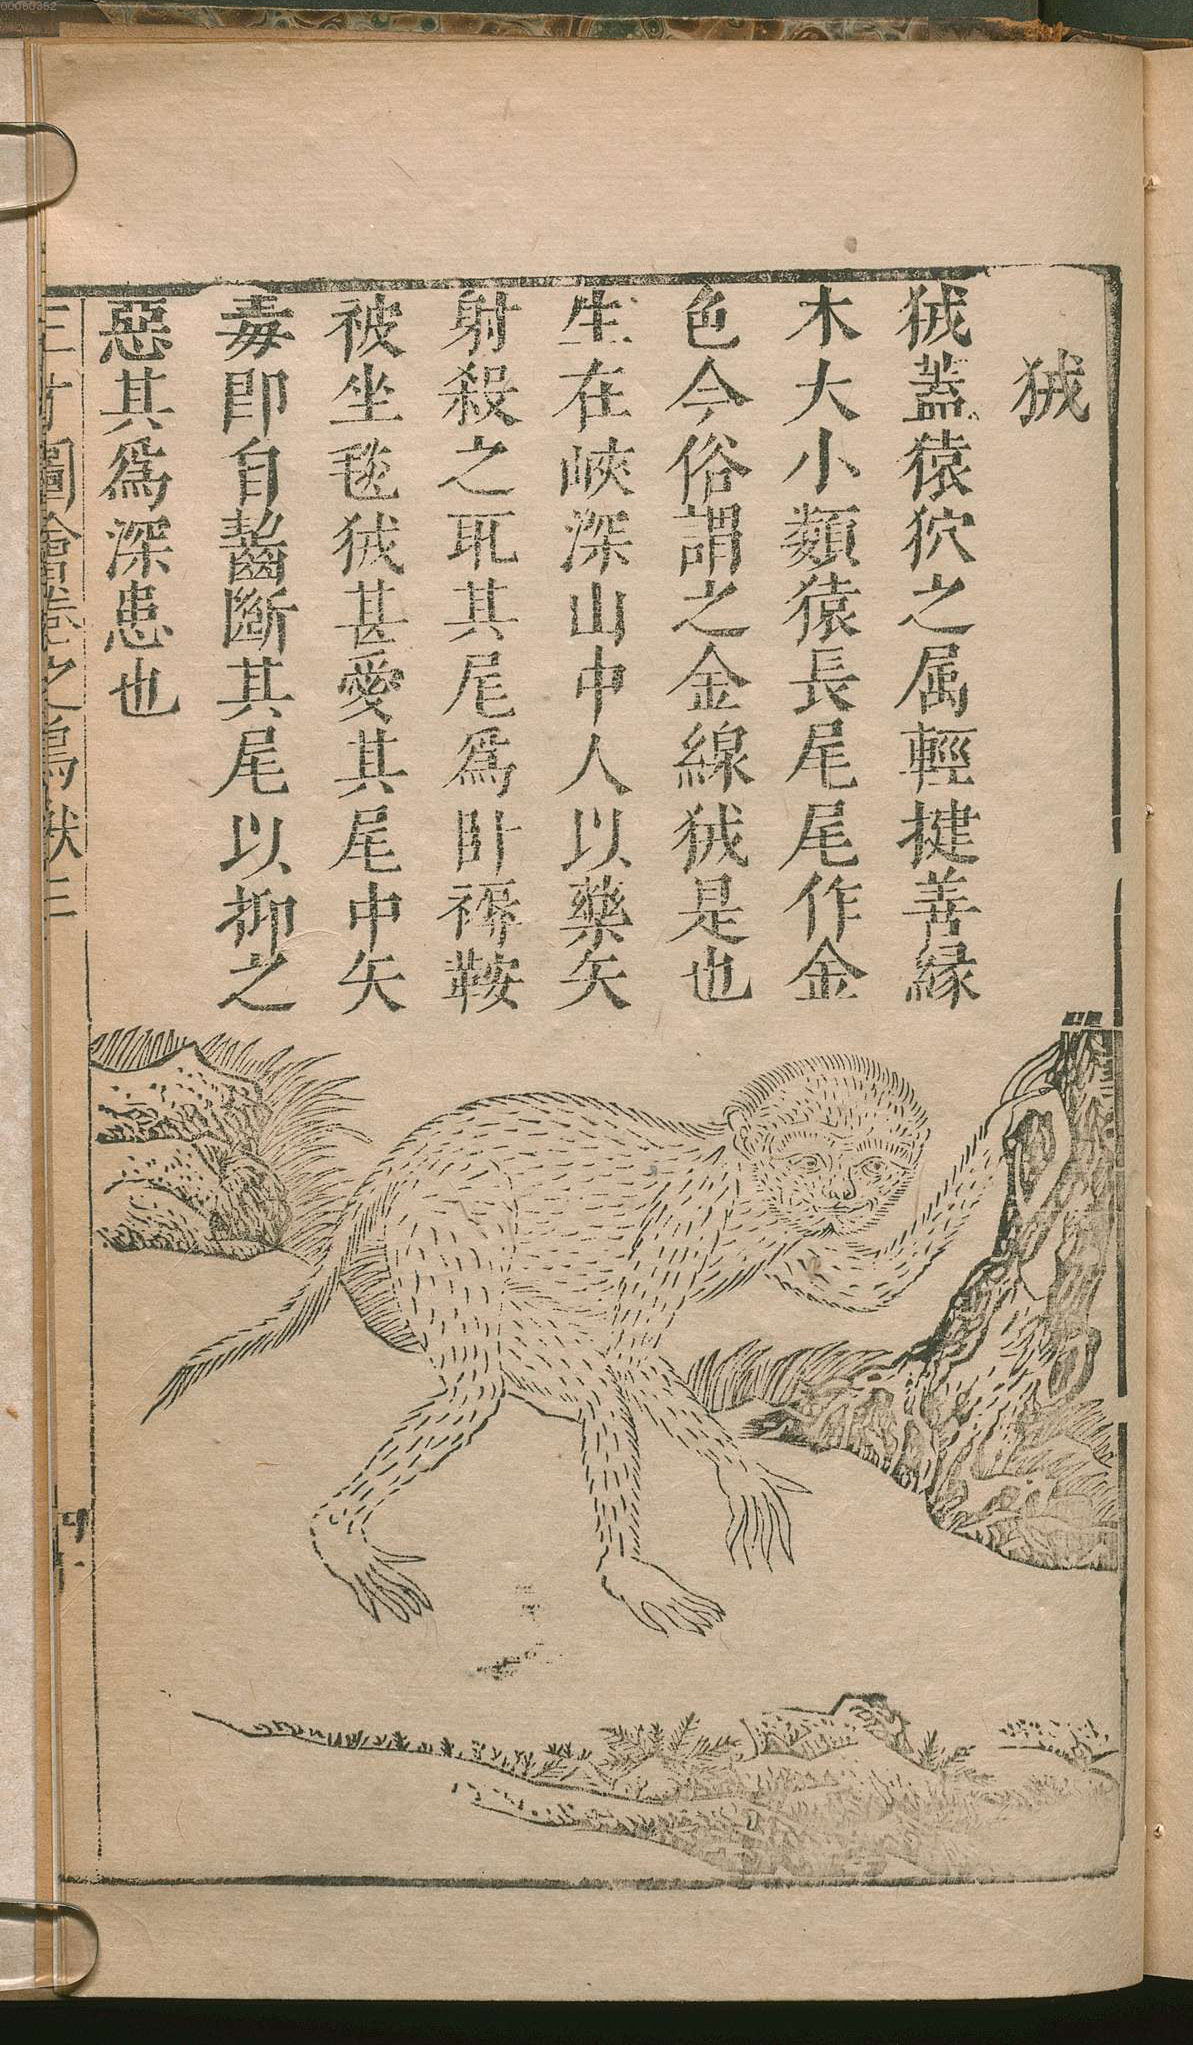 狨
狨蓋猿狖之属輕揵善緣
木大小類猿長尾尾作金
色今俗謂之金線狨是也
生在峽深山中人以藥矢
射殺之取其尾爲卧褥鞍
被坐毯狨甚愛其尾中矢
毒即自齧斷其尾以抑之
惡其爲深患也
三才圖會卷之鳥獸三
00060362